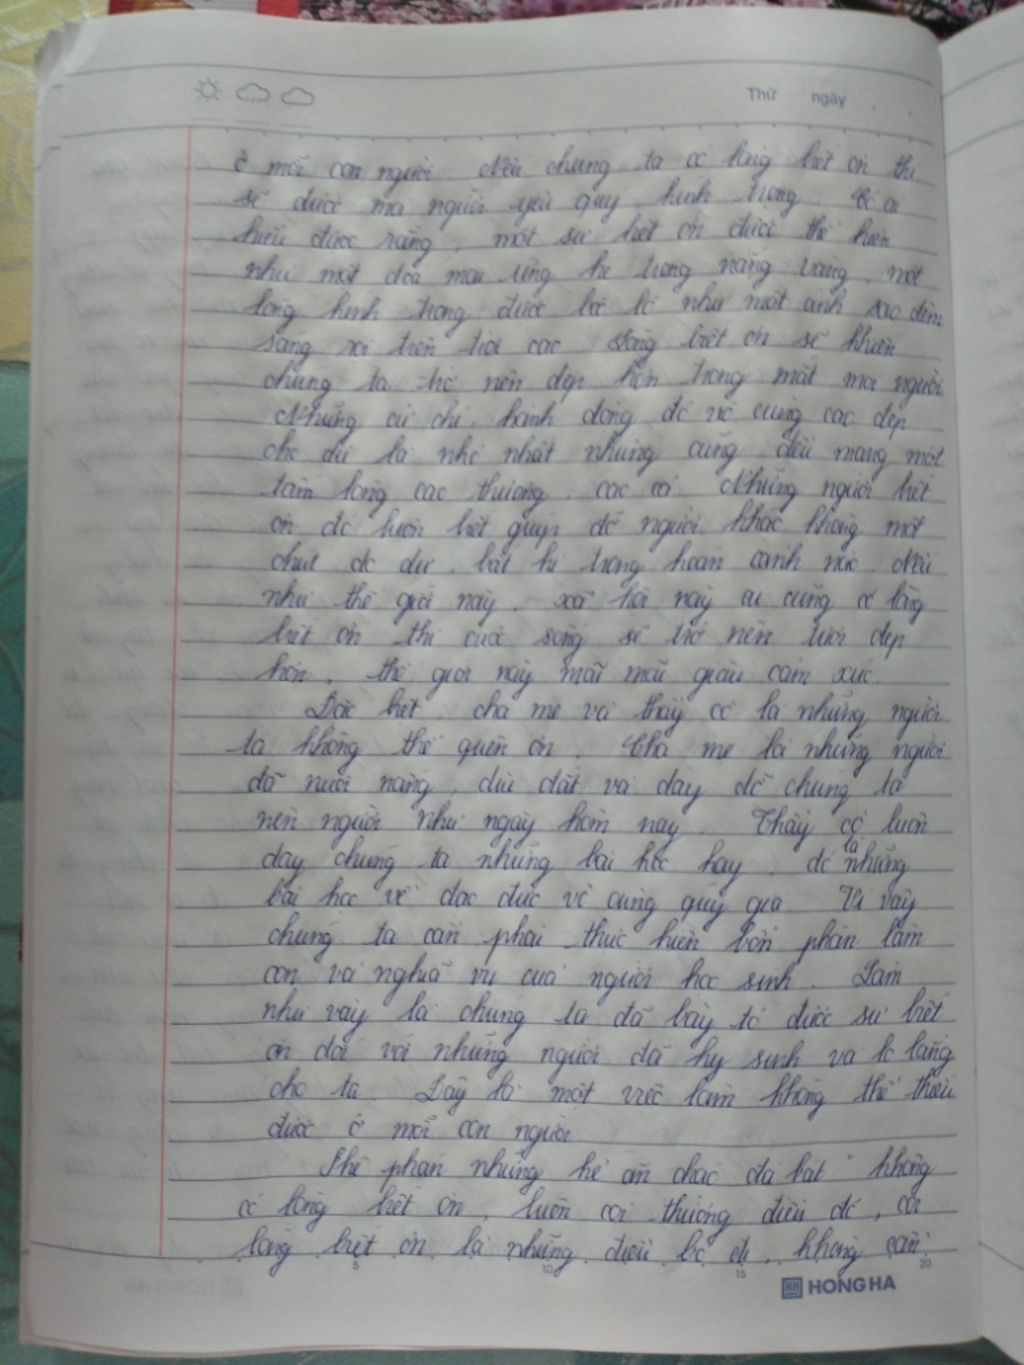 Thứ ngày
ở mỗi con người. Nếu chúng ta có lòng biết ơn thì
sẽ được mọi người yêu quý, kính trọng. Có ai
hiểu được rằng, một sự biết ơn được thể hiện
như một đoá mai ửng hé trong nắng vàng, một
lòng kính trọng được bộc lộ như một ánh sao đêm
sáng rọi trên trời cao. Lòng biết ơn sẽ khiến
chúng ta trở nên đẹp hơn trong mắt mọi người
Những cử chỉ, hành động đó vô cùng cao đẹp
cho dù là nhỏ nhất nhưng cũng đều mang một
tấm lòng cao thượng, cao cả. Những người biết
ơn đó luôn biết giúp đỡ người khác không một
chút do dự, bất kì trong hoàn cảnh nào. Nếu
như thế giới này, xã hội này ai cũng có lòng
biết ơn thì cuộc sống sẽ trở nên tươi đẹp
hơn, thế giới này mãi mãi giàu cảm xúc.
Đặc biệt, cha mẹ và thầy cô là những người
ta không thể quên ơn. Cha mẹ là những người
đã nuôi nấng, dìu dắt và dạy dỗ chúng ta
nên người như ngày hôm nay. Thầy cô luôn
dạy chúng ta những bài học hay, đó là những
bài học về đạo đức vô cùng quý giá. Vì vậy
chúng ta cần phải thực hiện bổn phận làm
con và nghĩa vụ của người học sinh. Làm
như vậy là chúng ta đã bày tỏ được sự biết
ơn đối với những người đã hy sinh và lo lắng
cho ta. Đây là một việc làm không thể thiếu
được ở mỗi con người
Phê phán những kẻ ăn cháo đá bát " không
có lòng biết ơn, luôn coi thường điều đó, coi
lòng biết ơn là những điều bỏ đi, không cần
5 10 15 20
HH HONG HA